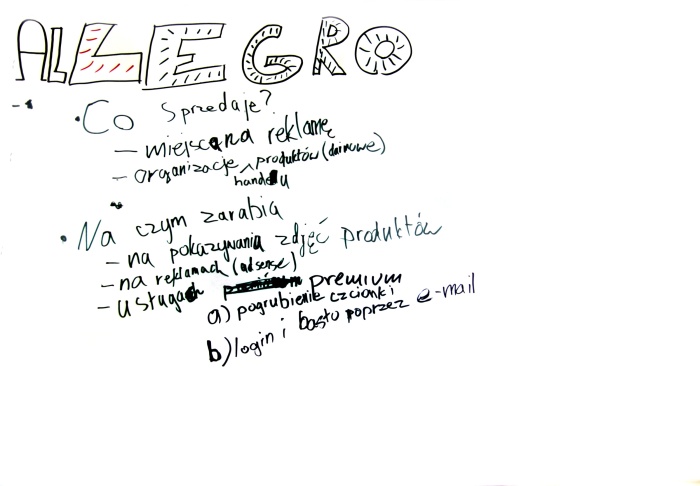 ALLEGRO
• Co sprzedaje?
— miejsca na reklamę
— organizacje produktów (darmowe)
handlu
• Na czym zarabia
— na pokazywania zdjęć produktów
— na reklamach (adsense)
— usługach premium
a) pogrubienie czcionki
b) login i hasło poprzez e-mail